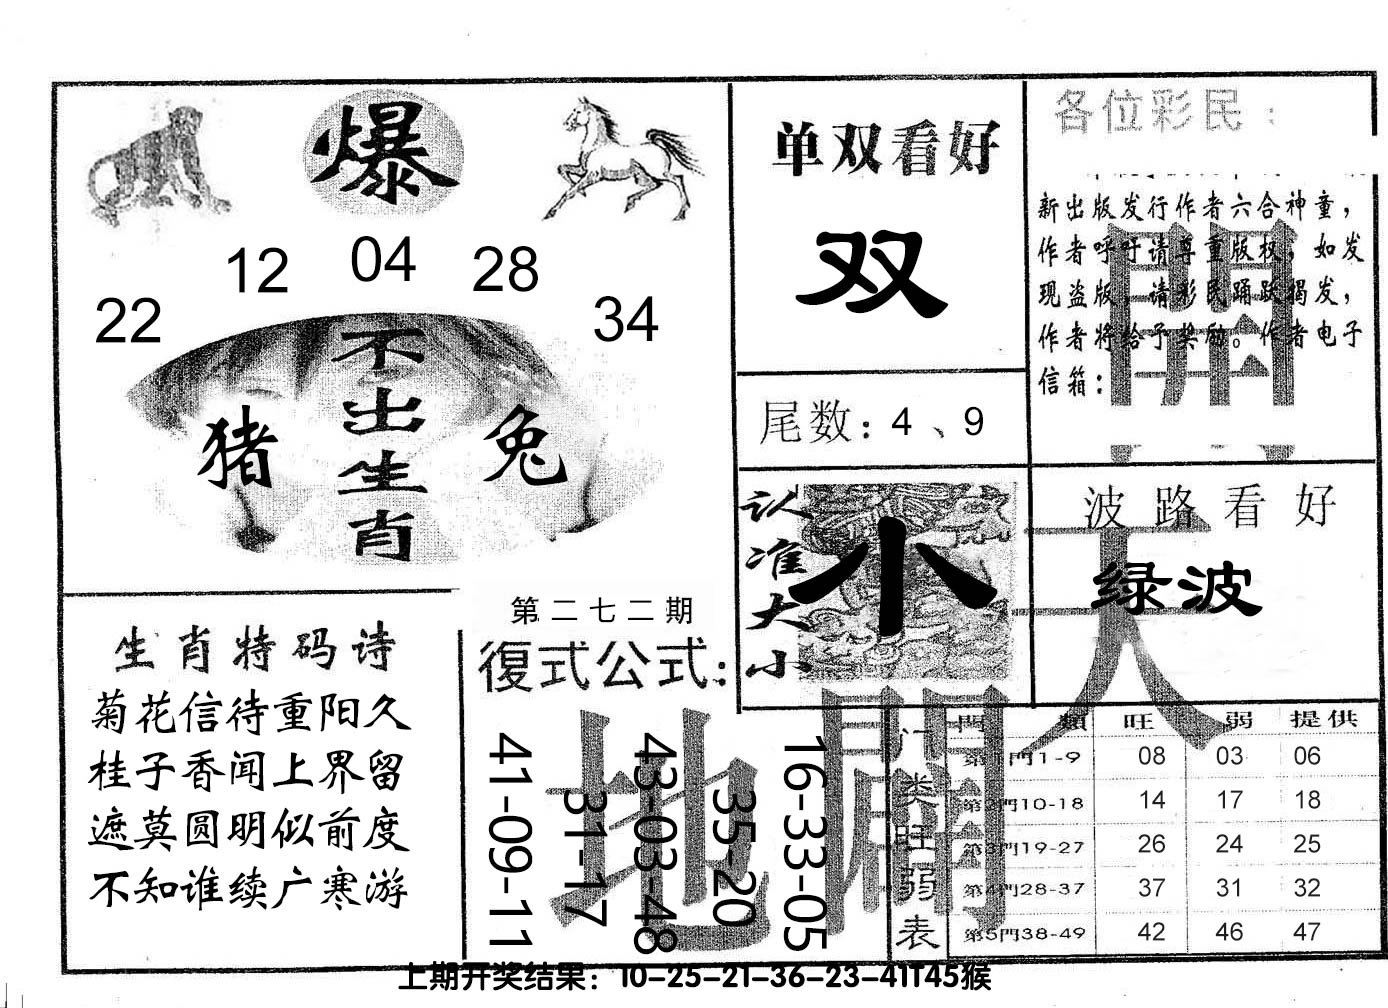 爆
12 04 28
22 34
不出生肖
猪 兔
单双看好
双
尾数：4、9
各位彩民：
新出版发行作者六合神童，
作者呼吁请尊重版权，如发
现盗版，请彩民踊跃揭发，
作者将给予奖励。作者电子
信箱：
認准大小
小
波路看好
绿波
生肖特码诗
菊花信待重阳久
桂子香闻上界留
遮莫圆明似前度
不知谁续广寒游
第二七二期
復式公式：
41-09-11
31-17
43-03-48
35-20
16-33-05
天
地
開
闢
门类旺弱表
門類 旺 弱 提供
第1門1-9 08 03 06
第2門10-18 14 17 18
第3門19-27 26 24 25
第4門28-37 37 31 32
第5門38-49 42 46 47
上期开奖结果：10-25-21-36-23-41T45猴